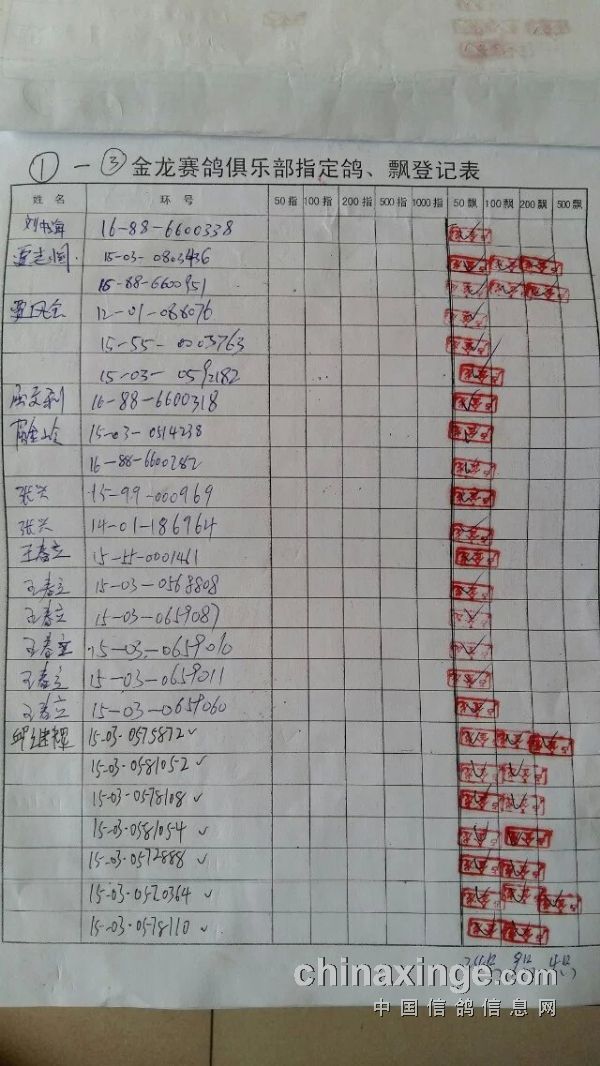 ① 一 ③ 金龙赛鸽俱乐部指定鸽、飘登记表
姓名 环号 50指 100指 200指 500指 1000指 50飘 100飘 200飘 500飘
16-88-6600338
15-03-0803436
15-88-6600951
12-01-088076
15-55-0003763
15-03-0592182
16-88-6600318
15-03-0514238
16-88-6600282
张兴 15-99-000969
张兴 14-01-186964
王春立 15-55-0001461
王春立 15-03-0568808
王春立 15-03-0659087
王春立 15-03-0659010
王春立 15-03-0659011
王春立 15-03-0659060
邱继程 15-03-0575872 ✓
15-03-0581052 ✓
15-03-0578108 ✓
15-03-0581054 ✓
15-03-0572888 ✓
15-03-0520364 ✓
15-03-0578110 ✓
chinaxinge.com
中国信鸽信息网